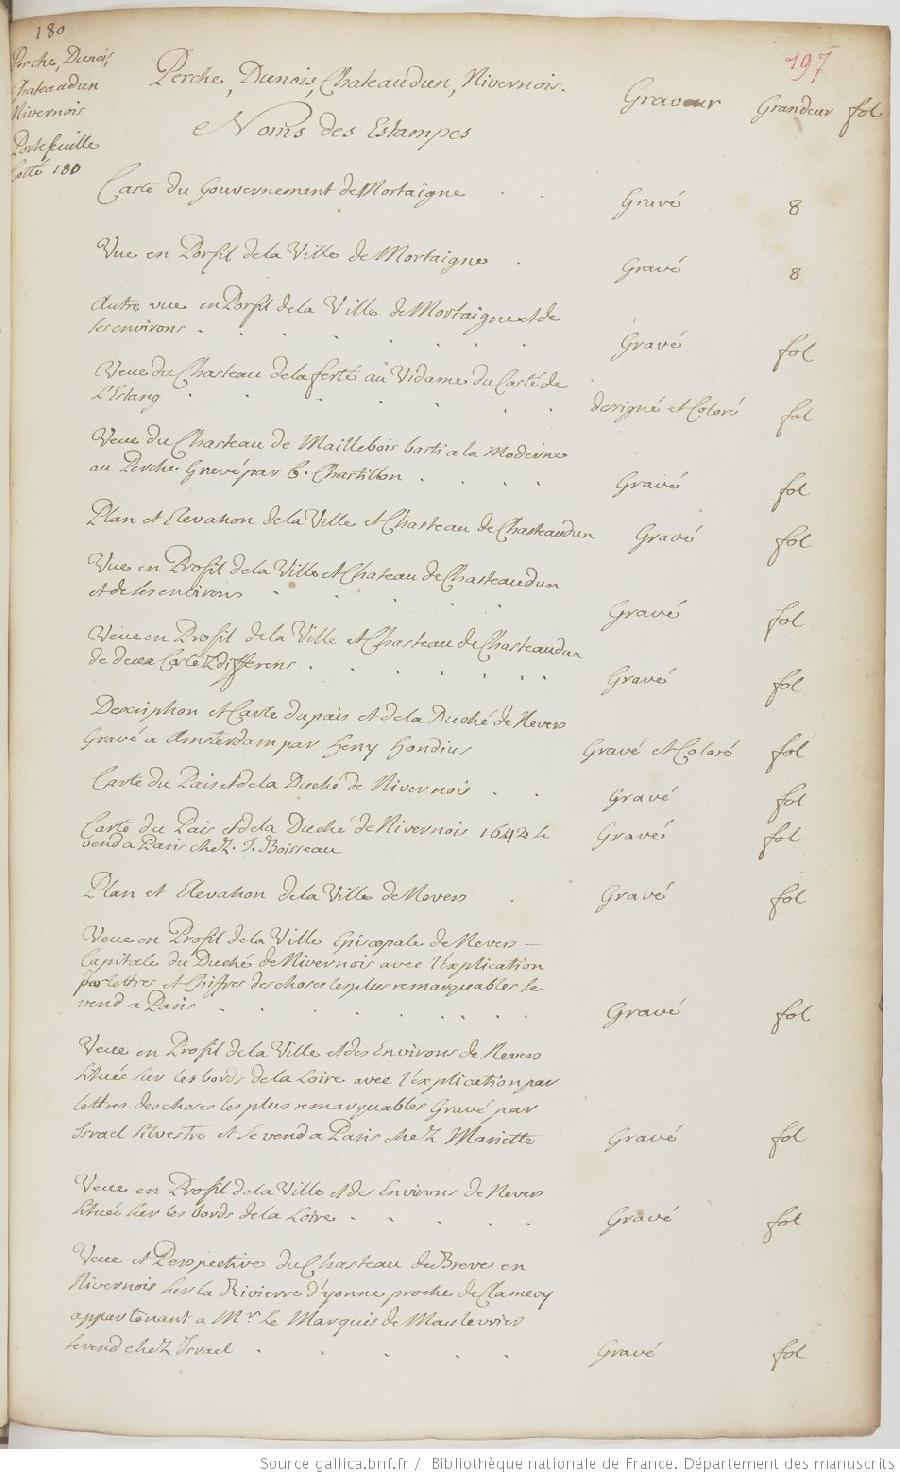 180
197
Perche, Dunois,
Chateaudun
Nivernois
Portefeuille
Cotté 180
Perche, Dunois, Chateaudun, Nivernois.
Graveur Grandeur fol
Noms des Estampes
Carte du Gouvernement de Mortaigne . . Gravé 8
Vue en Porfil de la Ville de Mortaigne . Gravé 8
Autre vue en Porfil de la Ville de Mortaigne et de
ses environs . . . . . . . Gravé fol
Veue du Chasteau de la ferté au Vidame du Costé de
L'Estang . . . . . . . dessigné et Coloré fol
Veue du Chasteau de Maillebois basti a la Moderne
au Perche Gravé par C. Chastillon . . . . Gravé fol
Plan et Elevation de la Ville et Chasteau de Chasteaudun Gravé fol
Vue en Profil de la Ville et Chateau de Chasteaudun
et de ses environs . . . . . Gravé fol
Veue en Profil de la Ville et Chasteau de Chasteaudun
de deux Costez differens . . . . . . Gravé fol
Description et Carte du païs et de la Duché de Nevers
Gravé a Amsterdam par Heny Hondius Gravé et Coloré fol
Carte du Païs et de la Duché de Nivernois . . Gravé fol
Carte du Païs et de la Duché de Nivernois 1642 se Gravé fol
vend a Paris chez. J. Boisseau
Plan et Elevation de la Ville de Nevers . Gravé fol
Veue en Profil de la Ville Episcopale de Nevers —
Capitale du Duché de Nivernois avec l'explication
par lettres et Chiffres des choses les plus remarquables se
vend a Paris . . . . . . . . Gravé fol
Veue en Profil de la Ville et des Environs de Nevers
située sur les bords de la Loire avec l'explication par
lettres des choses les plus remarquables Gravé par
Israel silvestre et se vend a Paris chez Mariette Gravé fol
Veue en Profil de la Ville et des Environs de Nevers
située sur les bords de la Loire . . . . . Gravé fol
Veue et Perspective du Chasteau de Breve en
Nivernois sur la Rivierre d'yonne proche de Clamecy
appartenant a Mr. Le Marquis de Maulevrier
se vend chez Israel . . . . . Gravé fol
Source gallica.bnf.fr / Bibliothèque nationale de France. Département des manuscrits